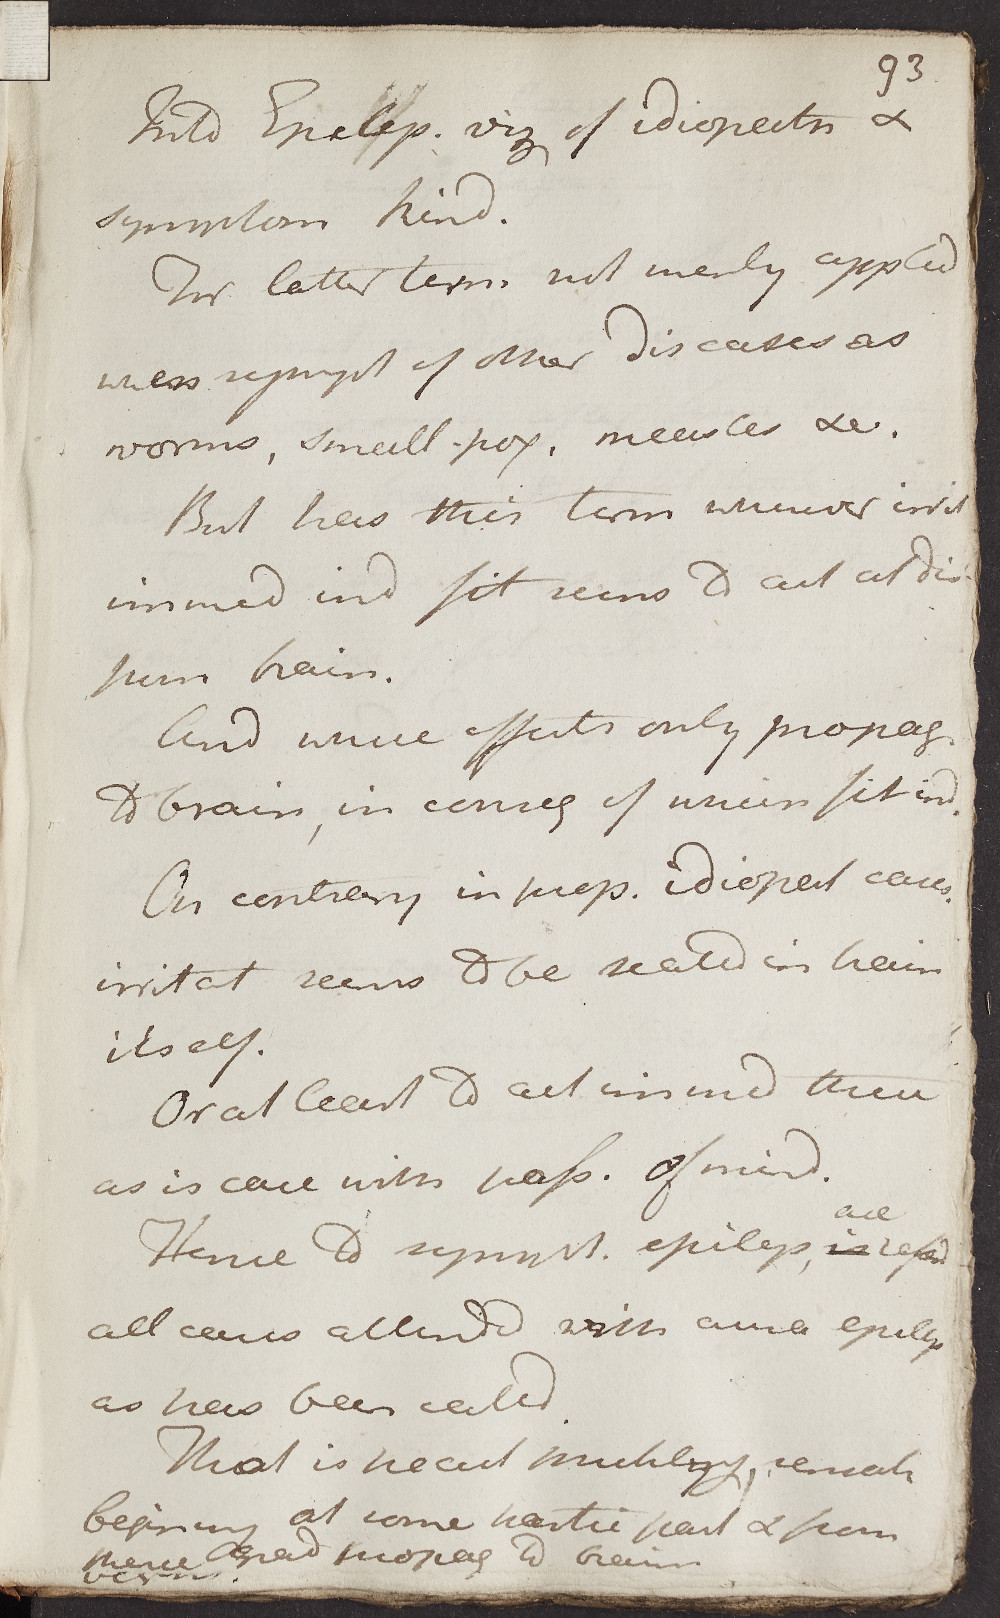 93
into Epilep. viz of idiopath &
symptom kind.
The latter term not merely applied
when sympt of other diseases as
worms, small-pox, measles &c.
But has this term whenever irrit
immed ind fit seems to act at dis-
from brain.
And whose effects only propag
to brain, in conseq of which fit ind.
On contrary in prop. idiopat cases.
irritat seems to be seated in brain
itself.
Or at least to act immed there
as is case with pass. of mind.
are
Hence to sympt. epilep, is refed
all cases attended with aura epilep
as has been called
That is peculi
begining at some partic part & from
thence grad propag to brain